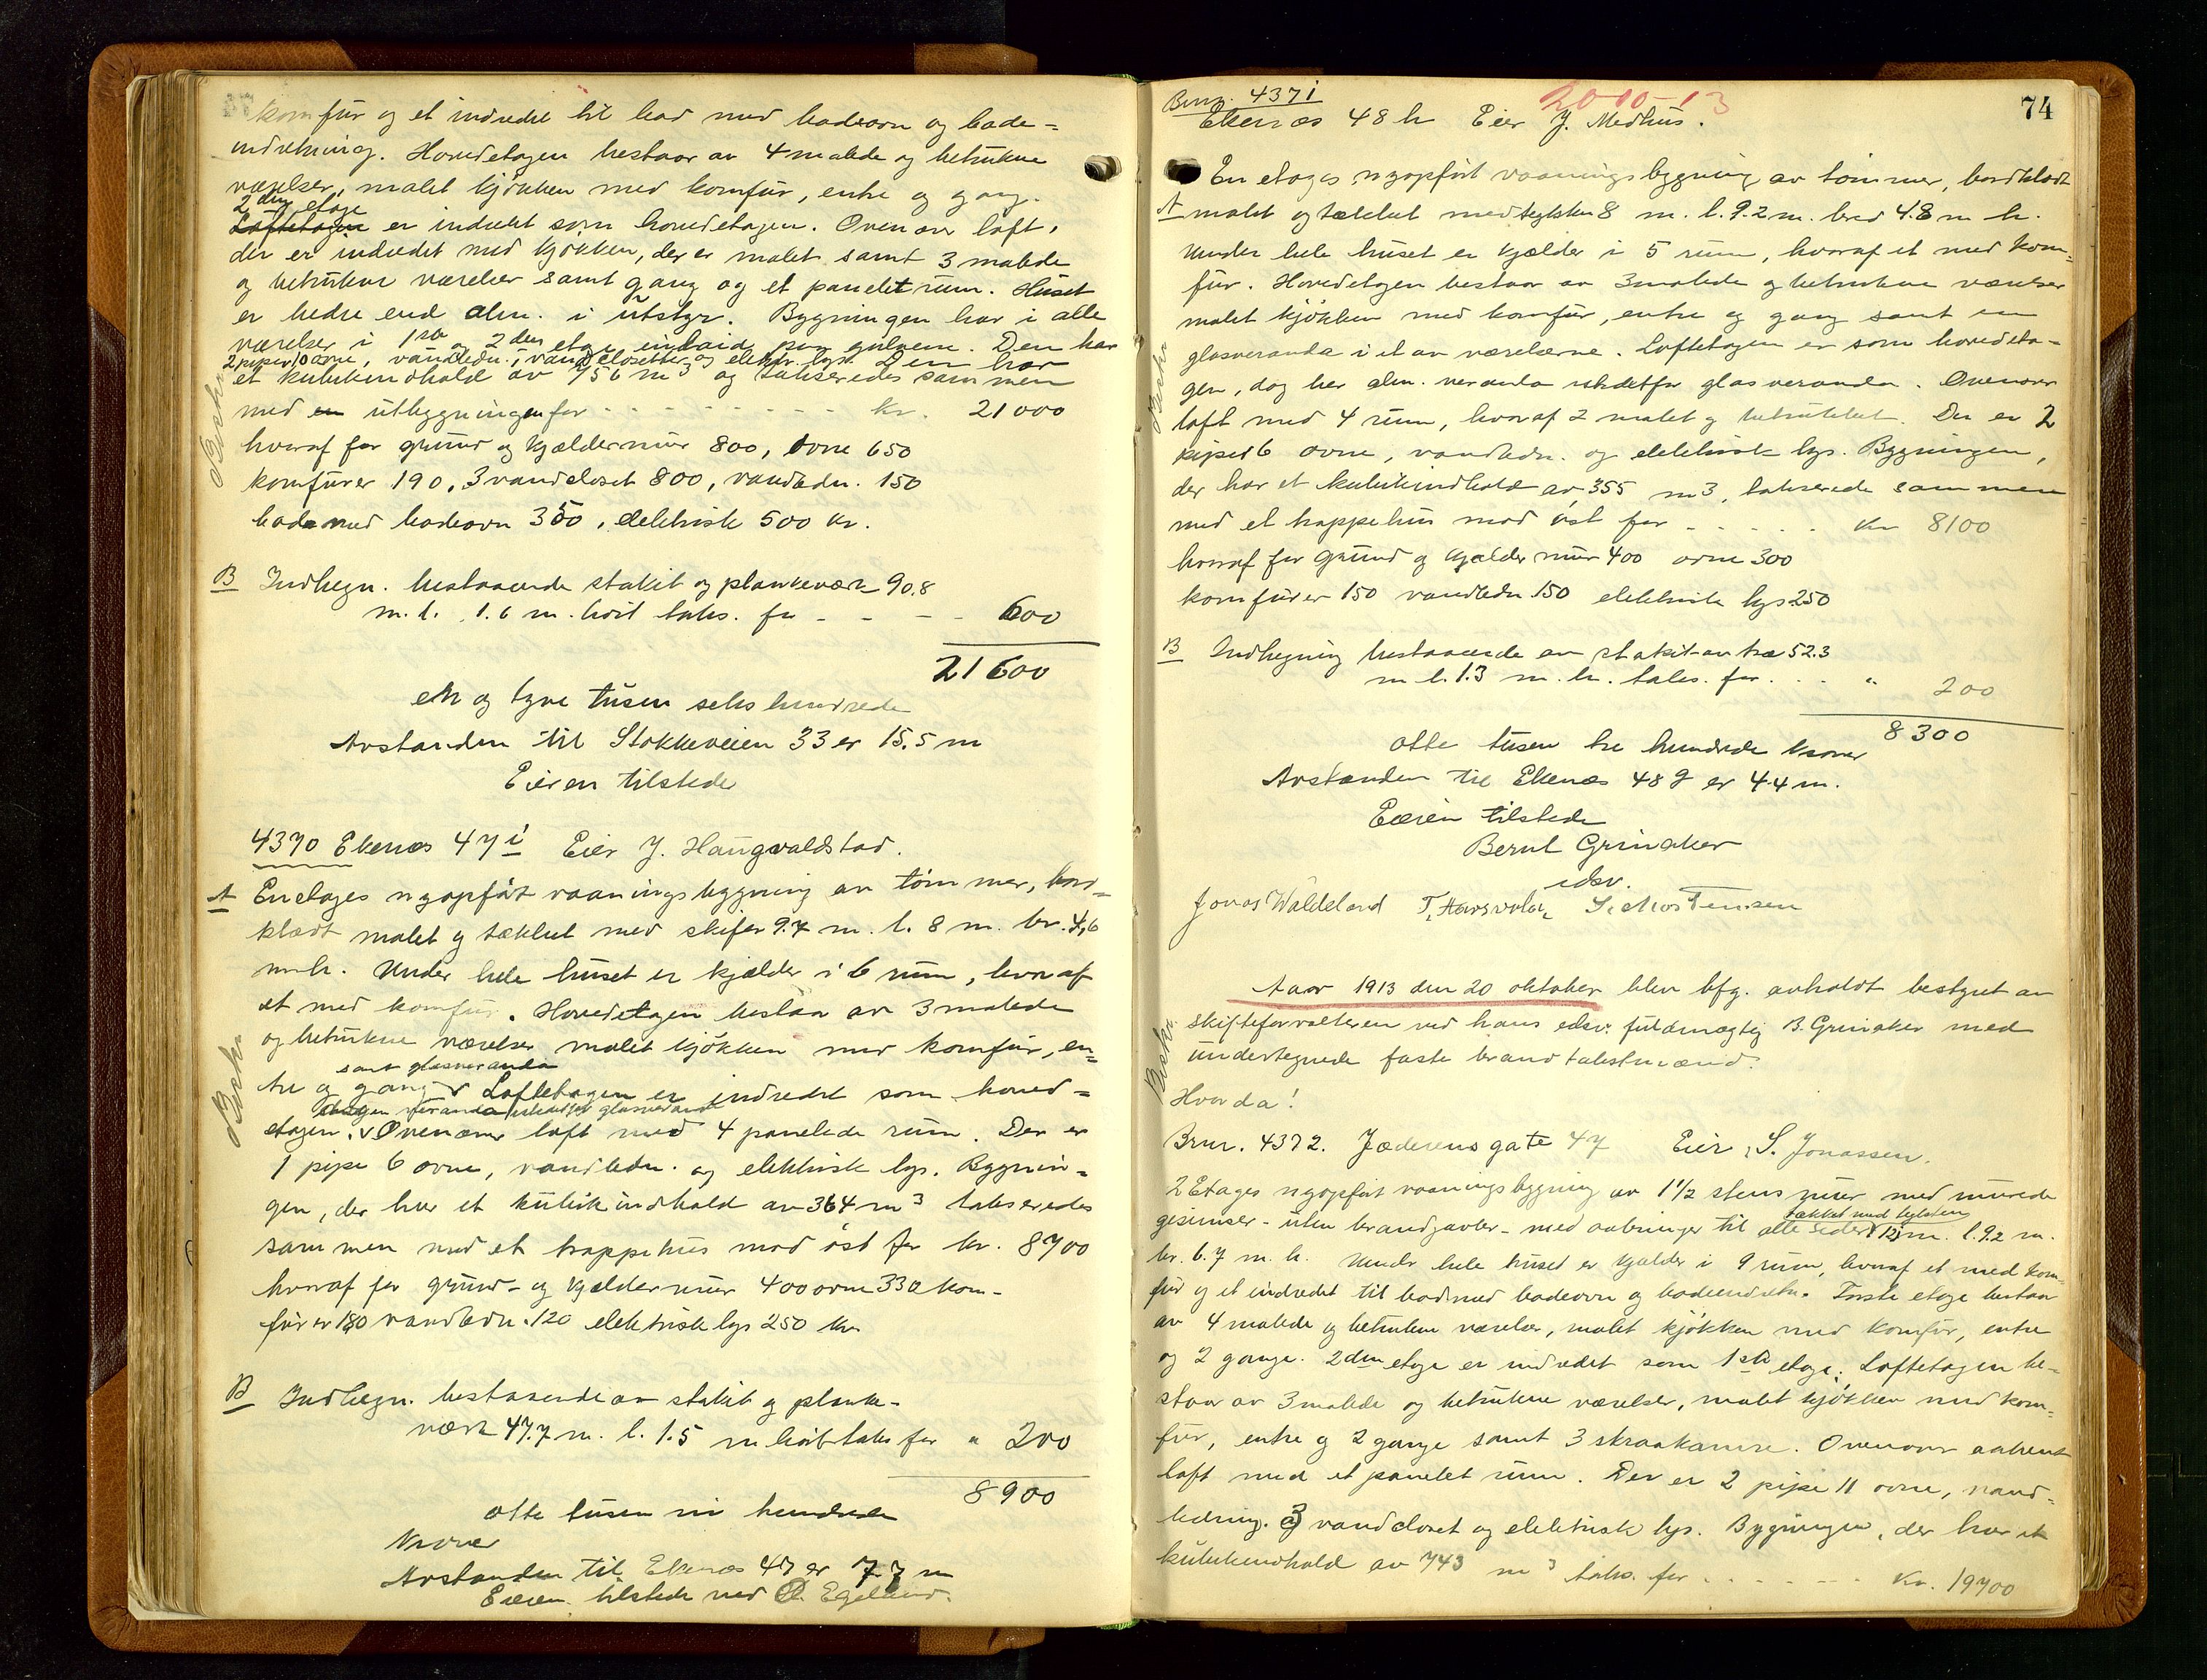 komfur og et indredet til bad med badeovn og bade=
indretning. Hovedetagen bestaar av 4 malede og betrukne
værelser, malet kjøkken med komfur, entre og gang.
2den etage
Loftetagen er indredet som hovedetagen. Ovenover loft,
der er indredet med kjøkken, der er malet samt 3 malede
og betrukne værelser samt gang og et panelet rum. Huset
er bedre end alm. i utstyr. Bygningen har i alle
værelser i 1ste og 2den etage inlaid paa gulvene. Den har
2 piper 10 ovne, vandledn., vandclosetter og elektr. lys. Den har
et kubikindhold av 756 m3 og takseredes sammen
med en utbygningen for - - - - - - - - - kr. 21000
hvoraf for grund og kjældermur 800, ovne 650
komfurer 190, 3 vandcloset 800, vandledn. 150
bad med badeovn 350, elektrisk 500 kr.
B Indhegn. bestaaende stakit og plankeværk 90.8
m. l. 1.6 m. høit taks. for - - - - 600
21600
en og tyve tusen seks hundrede
Avstanden til Stokkeveien 33 er 15.5 m
Eieren tilstede
4370 Ekenæs 47 i Eier J. Haugvaldstad.
A En etages nyopført vaaningsbygning av tømmer, bord=
klædt malet og tækket med skifer 9.7 m. l. 8 m. br. 4,6
m. h. Under hele huset er kjælder i 6 rum, hvoraf
et med komfur. Hovedetagen bestaar av 3 malede
og betrukne værelser malet kjøkken med komfur, en=
samt glasveranda
tre og gang. Loftetagen er indredet som hoved=
aapen veranda istedetfor glasveranda
etagen. Ovenover loft med 4 panelede rum. Der er
1 pipe 6 ovne, vandledn. og elektrisk lys. Bygnin=
gen, der har et kubikindhold av 364 m3 takseredes
sammen med et trappehus mod øst for kr. 8700
hvoraf for grund- og kjældermur 400 ovne 330 kom-
fürer 180 vandledn. 120 elektrisk lys 250 kr
B Indhegn. bestaaende av stakit og planke-
værk 47.7 m. l. 1.5 m høit taks for " 200
8900
otte tusen ni hundrede
Kroner
Avstanden til Ekenæs 47 er 7.7 m
Eieren tilstede ved O. Egeland.
Beskr.
Beskr
74
Brnr. 4371
20-10-13
Ekenæs 48 h Eier J. Medhus.
En etages nyopført vaaningsbygning av tømmer, bordklædt
A malet og tækket med teglsten 8 m. l. 9.2 m. bred 4.8 m h.
Under hele huset er kjælder i 5 rum, hvoraf et med kom=
fur. Hovedetagen bestaar av 3 malede og betrukne værelser
malet kjøkken med komfur, entre og gang samt en
glasveranda i et av værelserne. Loftetagen er som hovedeta=
gen, dog her alm. veranda istedetfor glasveranda. Ovenover
loft med 4 rum, hvoraf 2 malet og betrukket. Der er 2
piper 6 ovne, vandledn. og elektrisk lys. Bygningen,
der har et kubikindhold av 355 m3, takserede sammen
med et trappehus mod øst for - - - - - kr 8100
hvoraf for grund og kjælder mur 400 ovne 300
komfurer 150 vandledn 150 elektrisk lys 250
B Indhegning bestaaende av stakit av træ 52.3
m l. 1.3 m. h. taks. for . . . " 200
8300
otte tusen tre hundrede kroner
Avstanden til Ekenæs 48 g er 4.4 m.
Eieren tilstede
Bernt Grinaker
edsv.
Jonas Wåldeland T. Aarsvoll S. Mortensen
Aar 1913 den 20 oktober blev bfg. avholdt bestyret av
skifteforvalteren ved hans edsv. fuldmægtig B. Grinaker med
undertegnede faste brandtakstmænd.
Hvorda!
Brnr. 4372. Jæderens gate 47 Eier, S. Jonassen.
2 Etages nyopført vaaningsbygning av 1 1/2 stens mur med murede
tækket med teglsten
gesimser - uten brandgavler - med aabninger til alle sider 12 m. l. 9.2 m.
br. 6.7 m. h. Under hele huset er kjælder i 9 rum, hvoraf et med kom=
fur og et indredet til bad med badeovn og badeindretn. Første etage bestaar
av 4 malede og betrukne værelser, malet kjøkken med komfur, entre
og 2 gange. 2den etage er indredet som 1ste etage. Loftetagen be=
staar av 3 malede og betrukne værelser, malet kjøkken med kom=
fur, entre og 2 gange samt 3 skraakamre. Ovenover aabent
loft med et panelet rum. Der er 2 pipe 11 ovne, vand=
ledning. 3 vandcloset og elektrisk lys. Bygningen, der har et
kubikindhold av 743 m3 taks. for - - - - - - kr. 19700
Beskr
Beskr